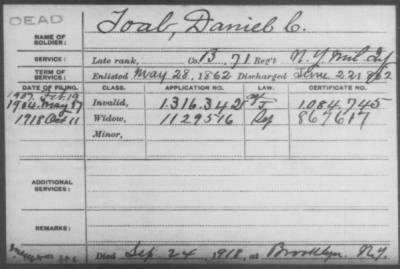 DEAD
Toab, Daniel C.
NAME OF
SOLDIER:
SERVICE: Late rank, Co. B, 71 Reg't N.Y. Mil. Inf
TERM OF
SERVICE: Enlisted May 28, 1862 Discharged
DATE OF FILING. CLASS. APPLICATION NO. LAW. CERTIFICATE NO.
1907 Feb. 19
1904 May 27 Invalid, 1.316.342 1.084.745
1918 Oct 11 Widow, 1129516 867617
Minor,
ADDITIONAL
SERVICES:
REMARKS:
Died Sep. 24, 1918, at Brooklyn N.Y.